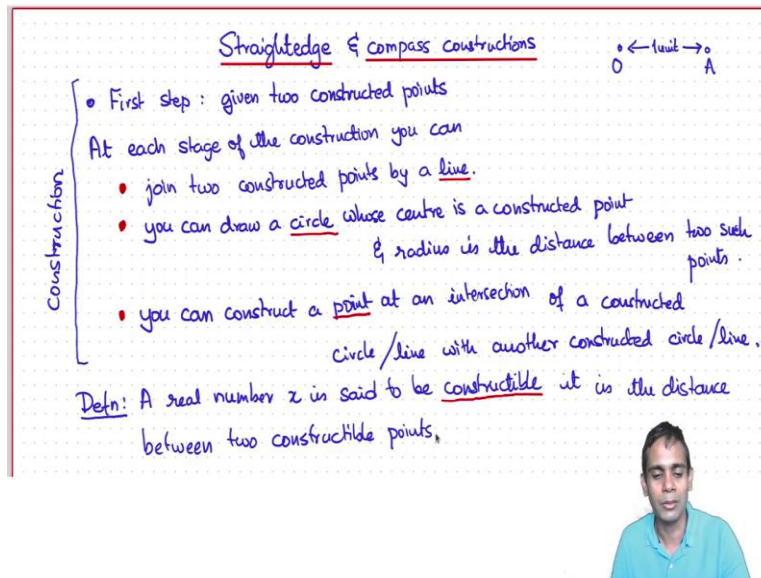 Straightedge & compass constructions
O ←1unit→ A
Construction
• First step : given two constructed points
At each stage of the construction you can
• join two constructed points by a line.
• you can draw a circle whose centre is a constructed point
& radius is the distance between two such
points.
• you can construct a point at an intersection of a constructed
circle/line with another constructed circle/line.
Defn: A real number x is said to be constructible it is the distance
between two constructible points.